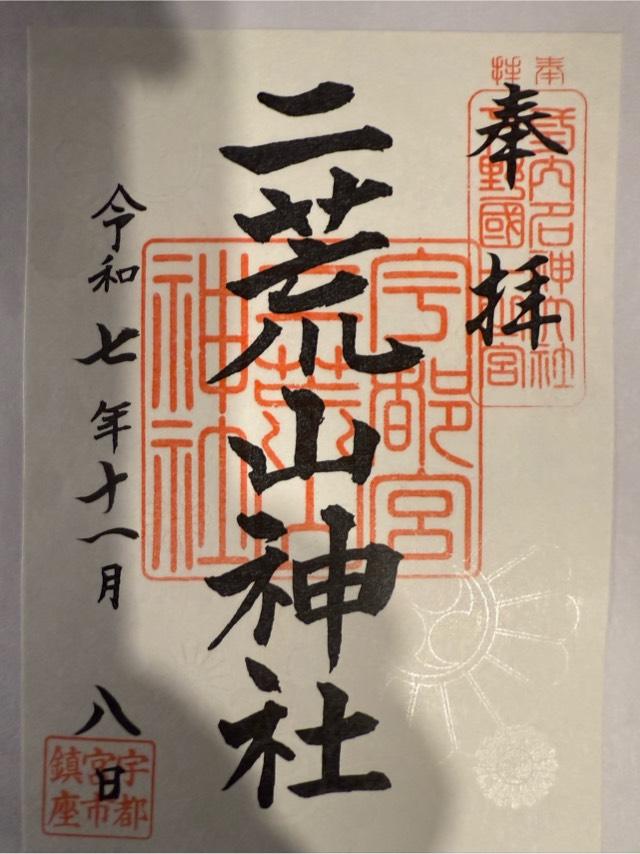 奉拝
式内名神大社
下野國一之宮
二荒山神社
宇都宮
二荒山
神社
令和七年十一月八日
宇都
宮市
鎮座